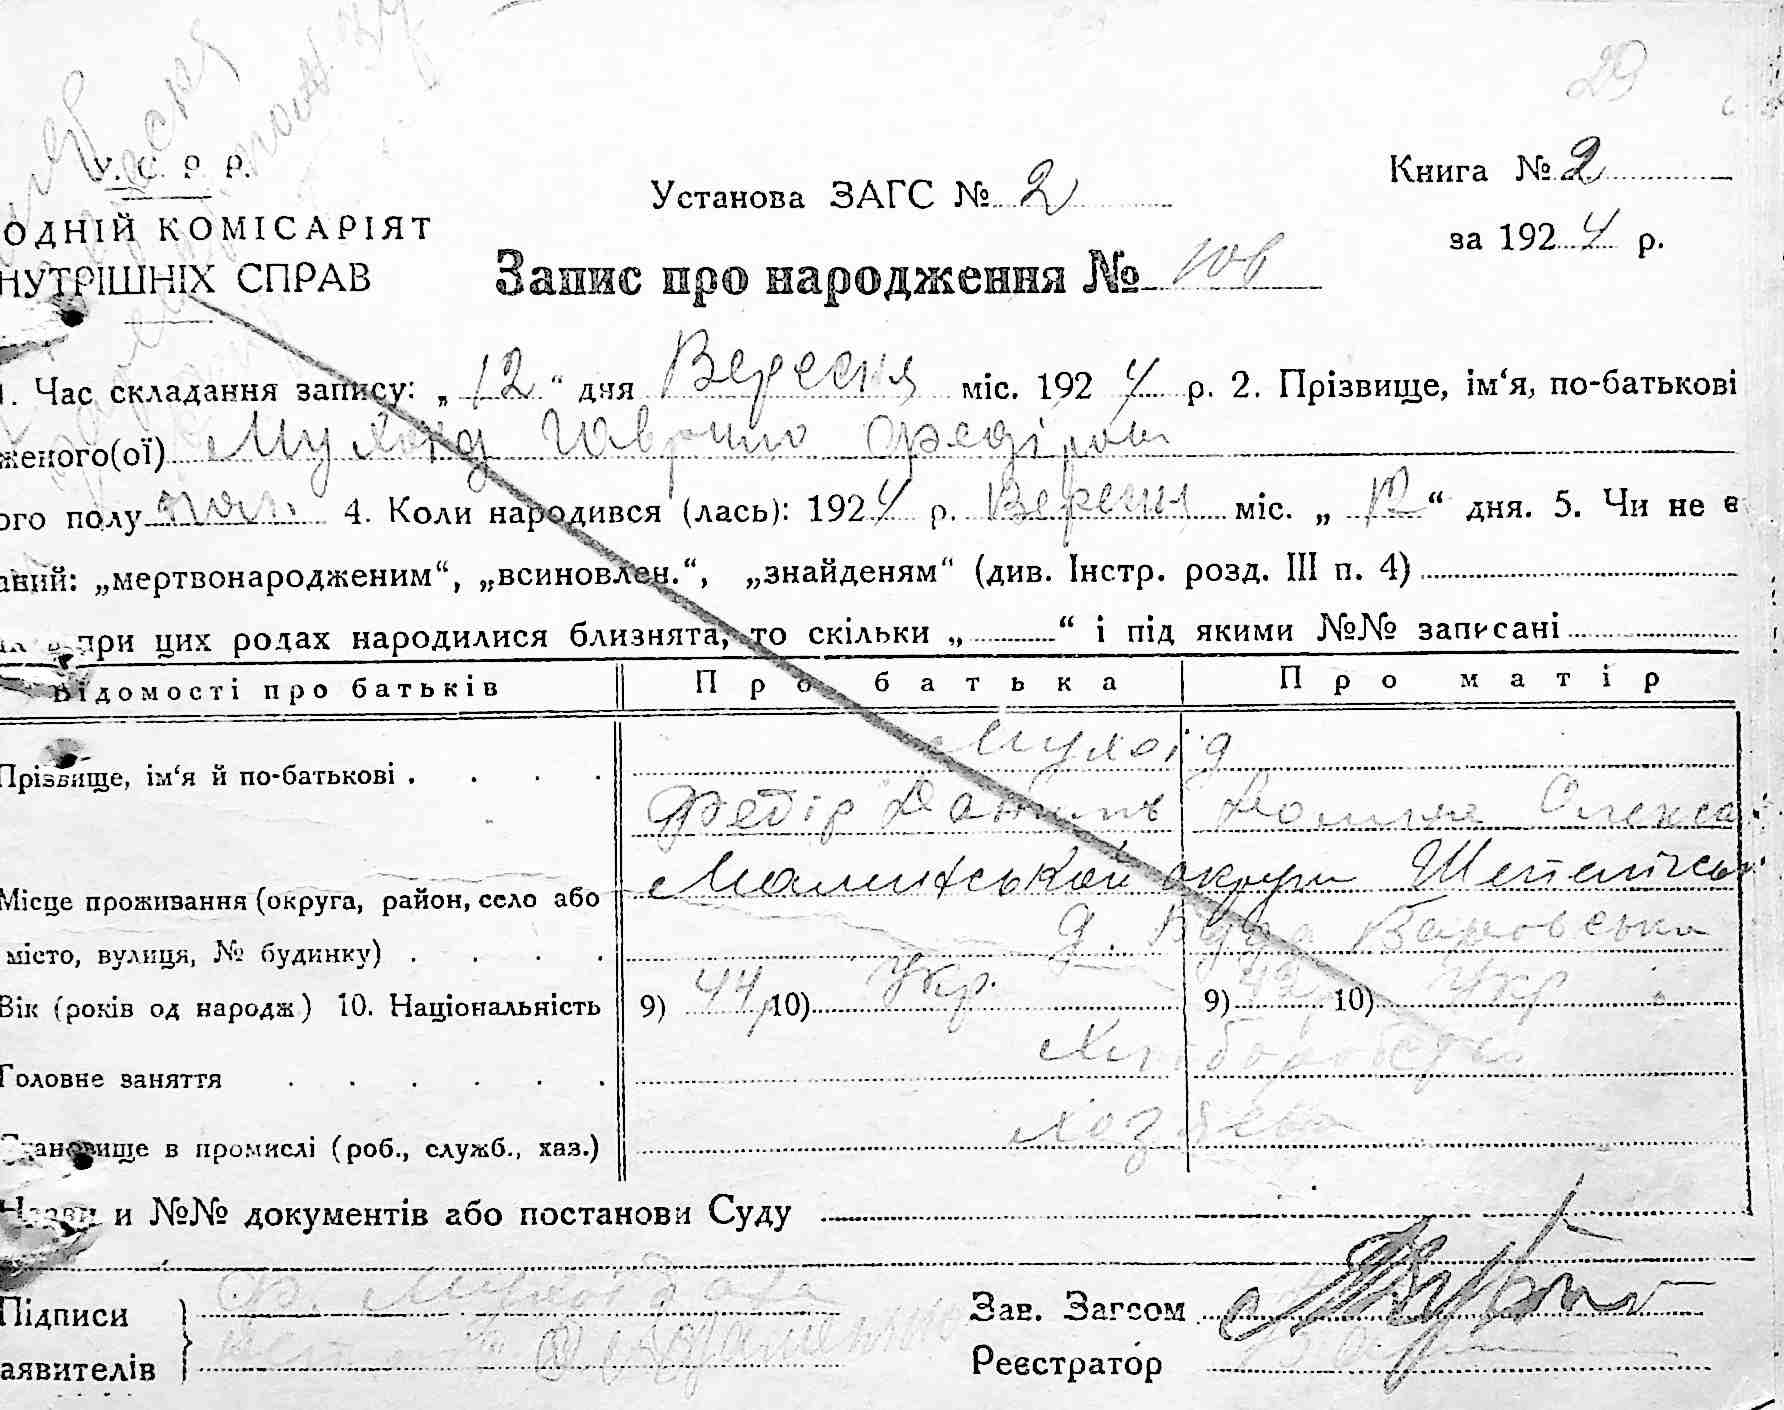 29
У. С. Р. Р.
Установа ЗАГС № 2
Книга № 2
ОДНІЙ КОМІСАРІЯТ
за 1924 р.
НУТРІШНІХ СПРАВ
Запис про народження № 106
1. Час складання запису: „ 12 “ дня Вересня міс. 1924 р. 2. Прізвище, ім‘я, по-батькові
женого(ої) Мухоїд Гаврило Федіров
ого полу чол. 4. Коли народився (лась): 1924 р. Вересня міс. „ 12 “ дня. 5. Чи не є
аний: „мертвонародженим“, „всиновлен.“, „знайденям“ (див. Інстр. розд. III п. 4)
при цих родах народилися близнята, то скільки „ “ і під якими №№ записані
Відомості про батьків Про батька Про матір
Мухоїд
Прізвище, ім‘я й по-батькові
Федір Данилів Домна Олекса
Місце проживання (округа, район, село або Малинської округи Шепеличсь
місто, вулиця, № будинку) д. Буда Варовська
Вік (років од народж) 10. Національність 9) 44 10) Укр. 9) 42 10) Укр
Головне заняття Хлібороб
Становище в промислі (роб., служб., хаз.) хозяева
Назви и №№ документів або постанови Суду
Підписи Ф. Мухоїд Зав. Загсом
аявителів Реєстратор